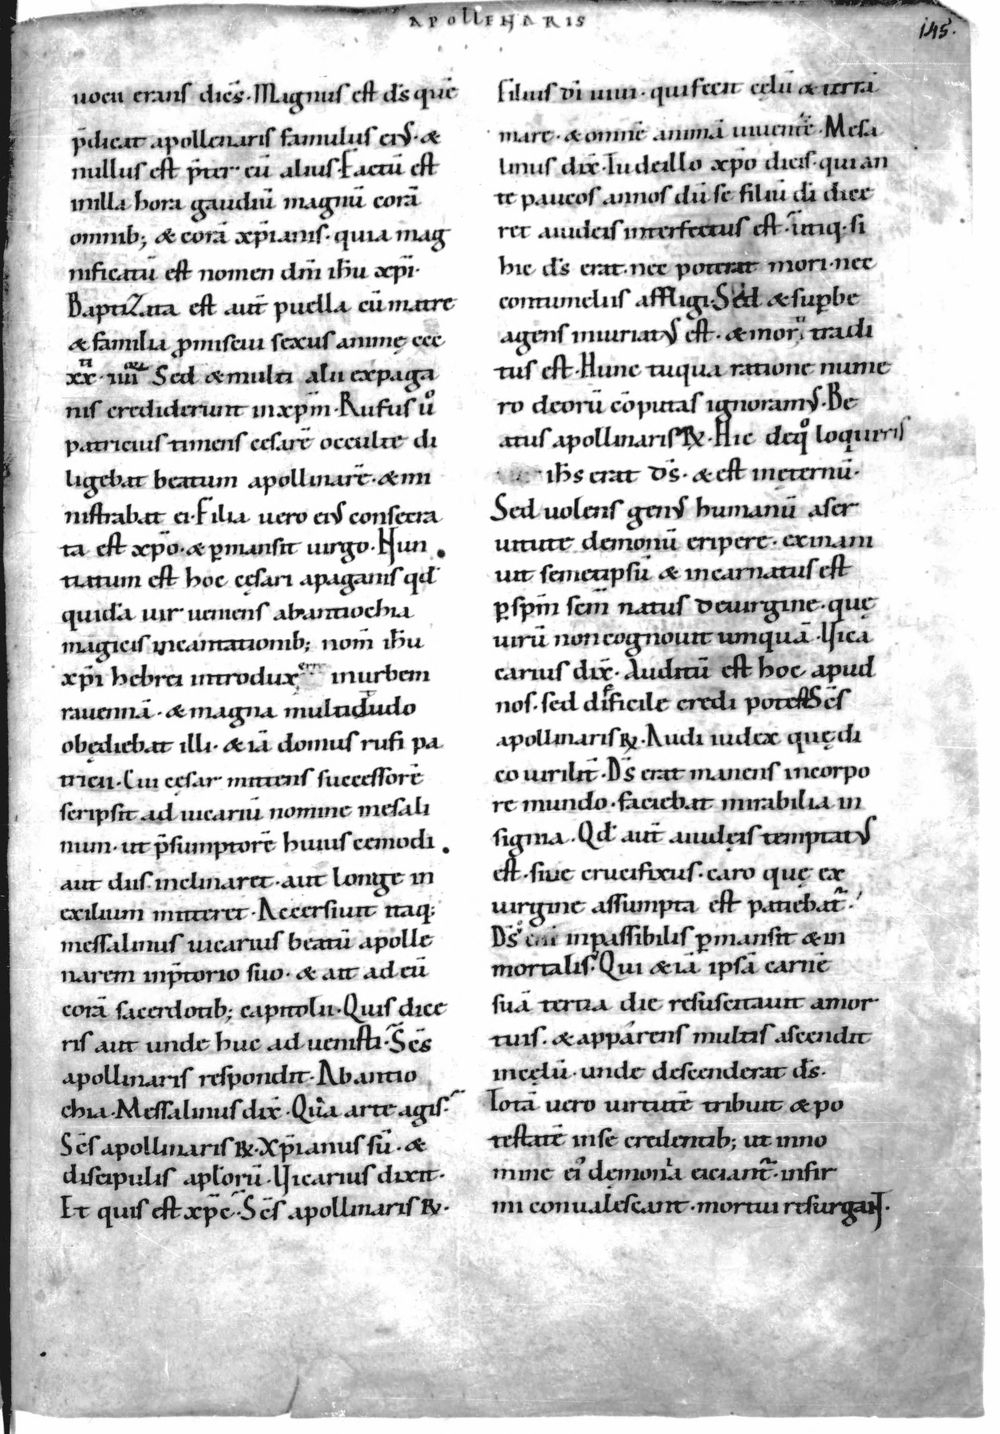 APOLLENARIS
145.
uoeu erans diēs. Magnus est d̄s quē
p̄dicat apollenaris famulus eiꝰ. &
nullus est p̄ter eū alius. Factū est
in illa hora gaudiū magnū corā
omnib; & corā xp̄ianis. quia mag
nificatū est nomen dn̄i ihū xp̄i.
Baptizata est aut̄ puella cū matre
& familia ꝓmiscui sexus animę ccc
xx iiii Sed & multi alii expaga
nis crediderunt in xp̄m. Rufus ūo
patricius timens cesarē occulte di
ligebat beatum apollinarē. & mi
nistrabat ei. Filia uero eiꝰ consecra
ta est xp̄o. & ꝑmansit uirgo. Nun
tiatum est hoc cęsari apaganis qd̄
quidā uir ueniens abantiochia
magicis incantationib; nom̄ ihū
xp̄i hebrei introdux in urbem
rauennā. & magna multidudo
obędiebat illi. & iā domus rufi pa
tricii. Cui cęsar mittens successorē
scripsit ad uicariū nomine mesali
num. ut p̄sumptorē huius cemodi
aut diis inclinaret. aut longe in
exilium mitteret. Accersiuit itaq;
messalinus uicarius beatū apolle
narem inp̄torio suo. & ait ad eū
corā sacerdotib; capitolii. Quis dice
ris aut unde huc ad uenisti. Sc̄s
apollinaris respondit. Abantio
chia. Messalinus dix̄. Qua arte agis.
Sc̄s apollinaris ℞. Xp̄ianus sū. &
discipulis apl̄orū. Uicarius dixit.
Et quis est xp̄c. Sc̄s apollinaris ℞.
Filius dī uiui. qui fecit cęlū & terrā
mare. & omnē animā uiuentē. Mesa
linus dix̄. Tu de illo xp̄o dicis. qui an
te paucos annos dū se filiū dī dice
ret aiudeis interfectus est. utiq. si
hic d̄s erat. nec poterat mori. nec
contumeliis affligi. Sed & suꝑbe
agens iniuriatꝰ est. & mori tradi
tus est. Hunc tu qua ratione nume
ro deorū cōputas ignoramꝰ. Be
atus apollinaris ℞. Hic deq̊ loqueris
ih̄s erat d̄s. & est inęternū.
Sed uolens genꝰ humanū aser
uitute demonū eripere. exinani
uit semetipsū & incarnatus est
ꝑ sp̄m sc̄m natus deuirgine. quę
uirū non cognouit umquā. Uica
carius dix̄. Auditū est hoc apud
nos. sed dificile credi potest. Sc̄s
apollinaris ℞. Audi iudex quę di
co uirilit̄. D̄s erat manens incorpo
re mundo. faciebat mirabilia in
signa. Qd̄ aut̄ aiudęis temptatꝰ
est. siue crucifixus. caro quę ex
uirgine assumpta est patiebat̄.
D̄s inpassibilis ꝑmansit & in
mortalis. Qui & iā ipsā carnē
suā tertia die resuscitauit amor
tuis. & apparens multis ascendit
incęlū. unde descenderat d̄s.
Totā uero uirtutē tribuit & po
testatē inse credentib; ut inno
mine eiꝰ dęmonia eiciant̄. infir
mi conualescant. mortui resurgant.